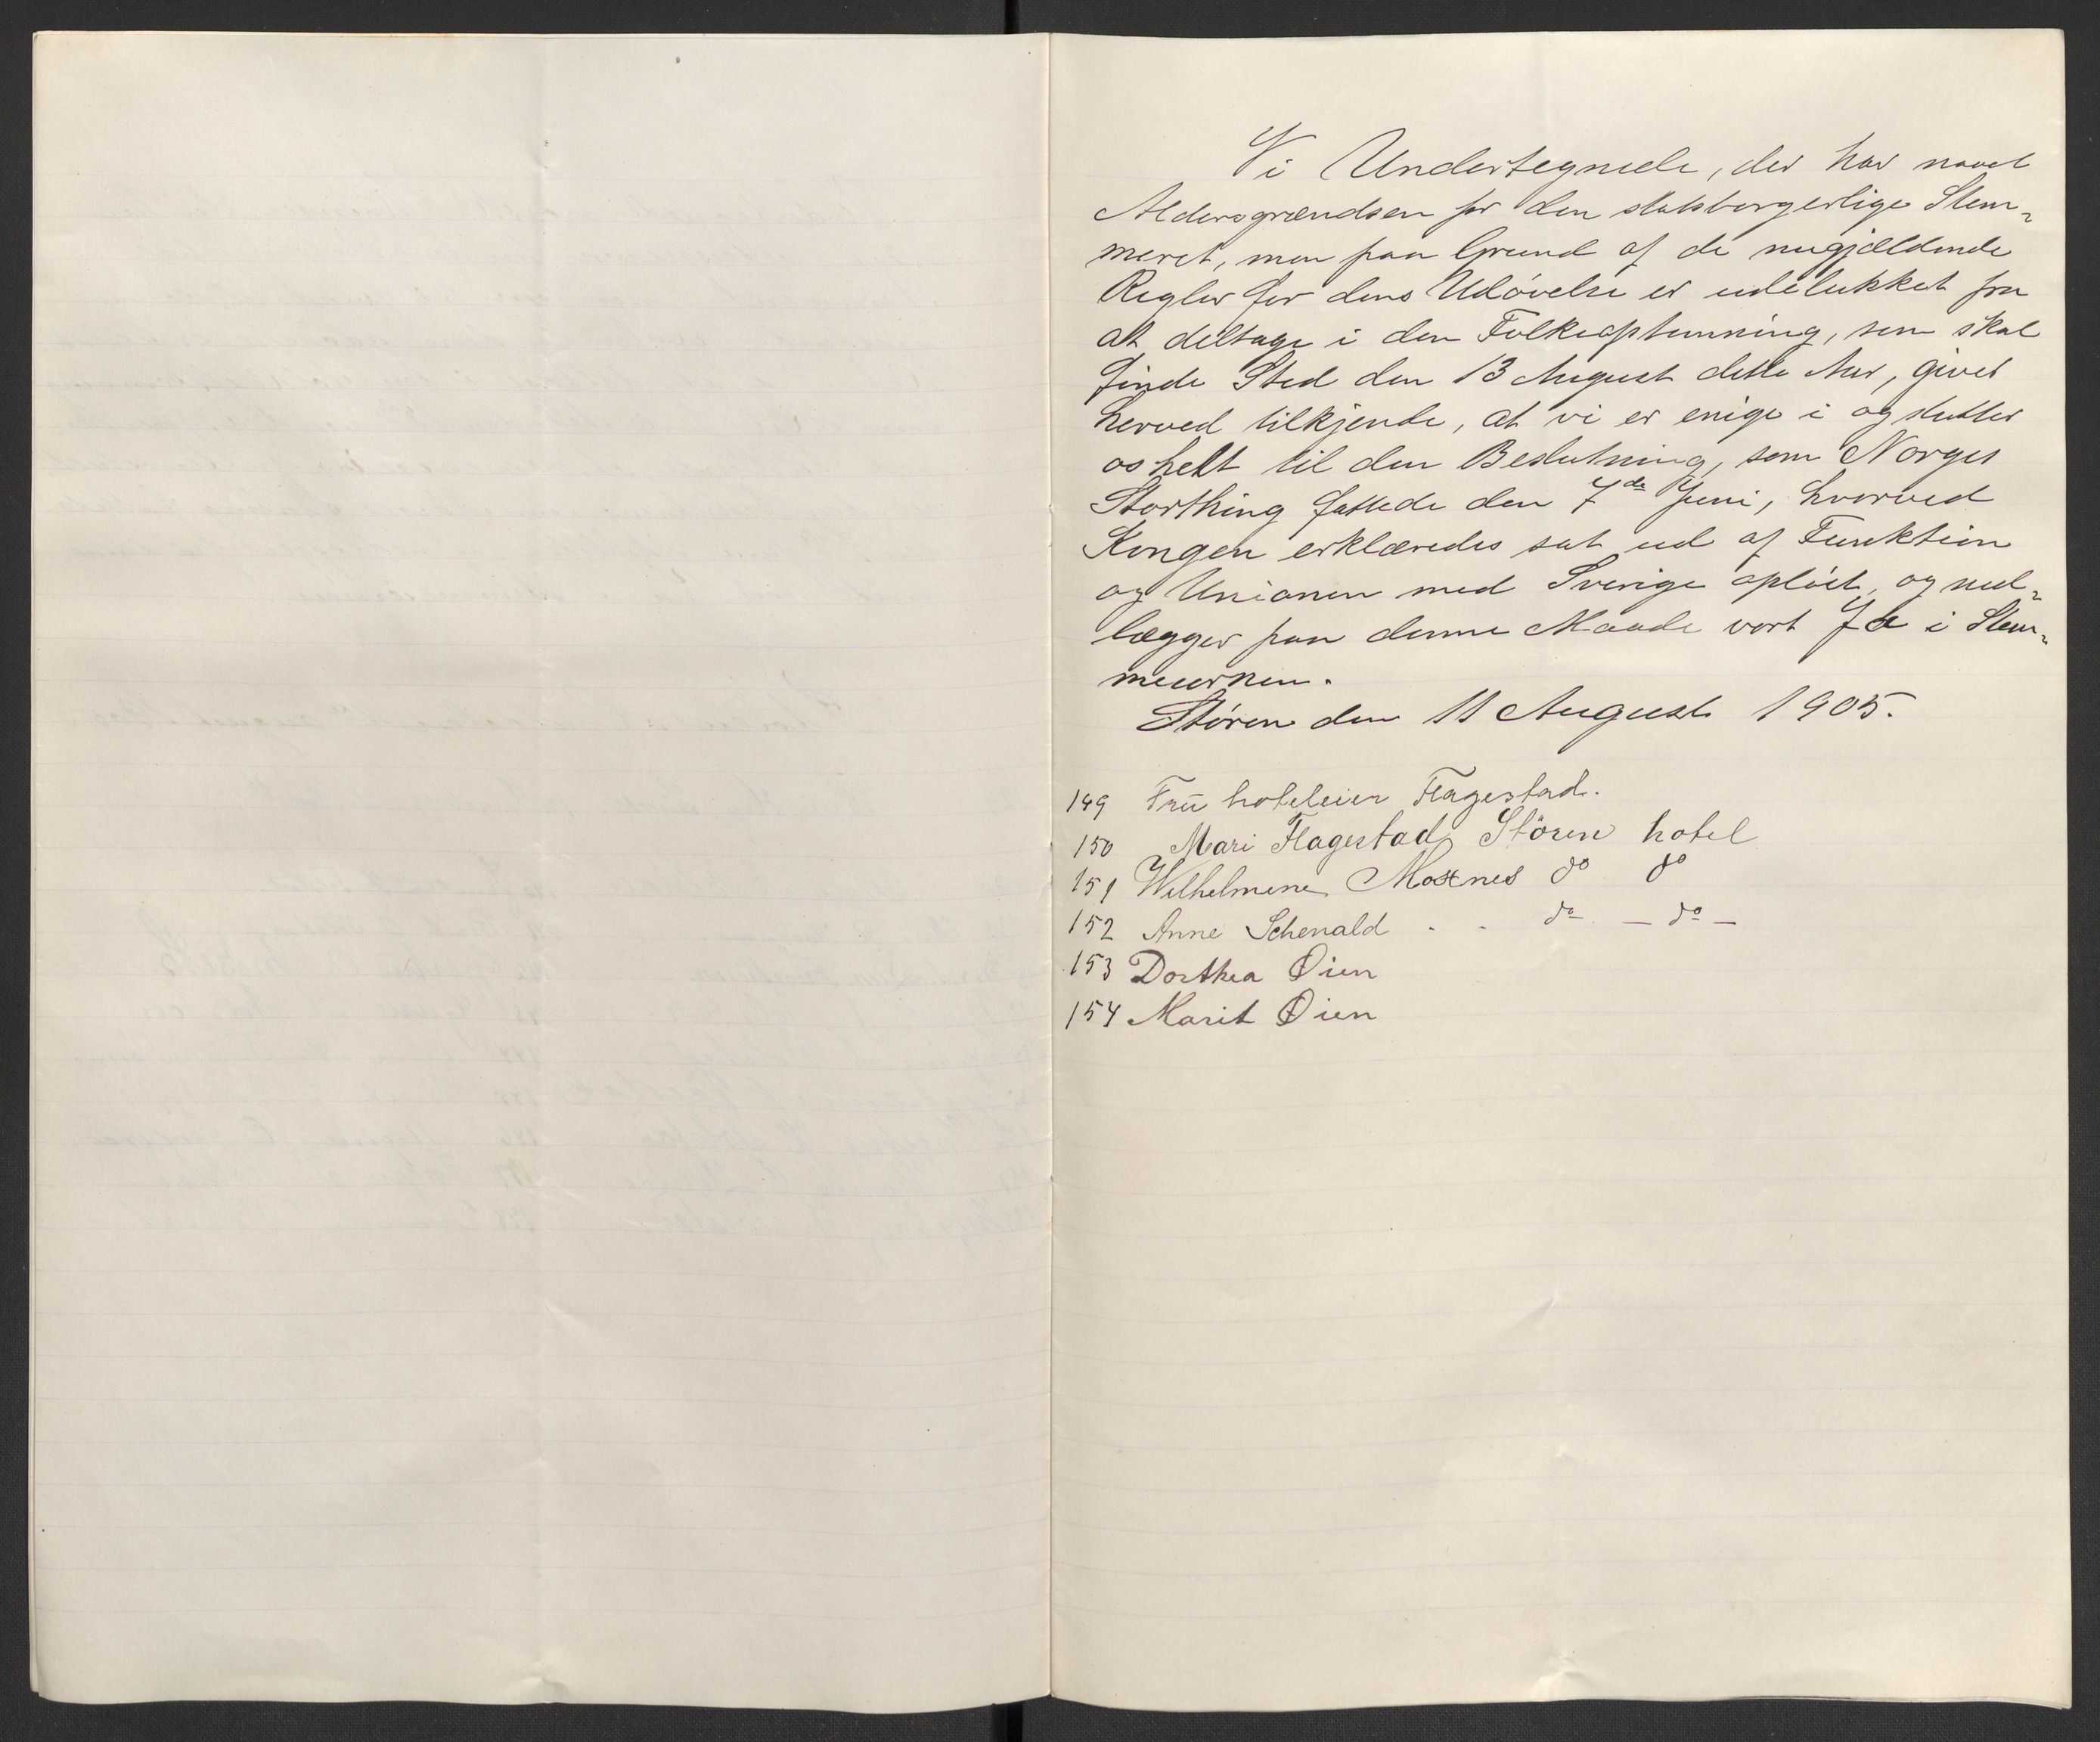 Vi Undertegnede, der har naaet
Aldersgrændsen for den statsborgerlige Stem-
meret, men paa Grund af de nugjældende
Regler for dens Udøvelse er udelukket fra
at deltage i den Folkeafstemning, som skal
finde Sted den 13 August dette Aar, giver
herved tilkjende, at vi er enige i og slutter
os helt til den Beslutning, som Norges
Storthing fattede den 7de Juni, hvorved
Kongen erklæredes sat ud af Funktion
og Unionen med Sverige opløst, og ned-
lægger paa denne Maade vort Ja i Stem-
meurnen.
Støren den 11 August 1905.
149 Fru hoteleier Flagestad.
150 Mari Flagestad Stören hotel
151 Wilhelmine Moxnes do do
152 Anne Schenald . . do - do -
153 Dorthea Øien
154 Marit Øien